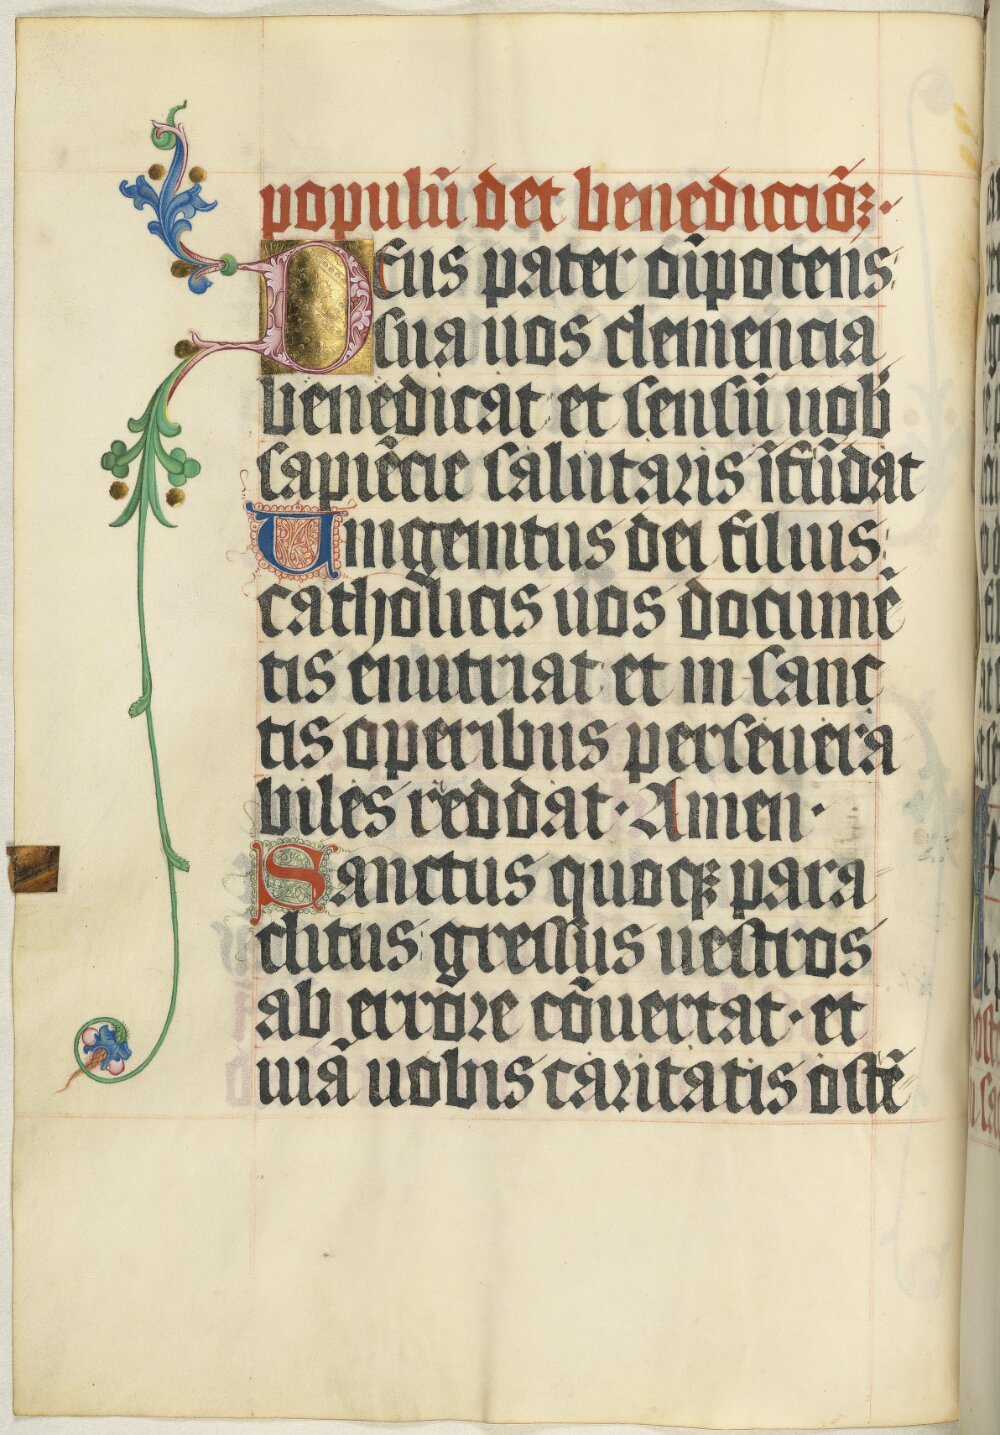 populū det benedicciōꝫ·
Deus pater oīpotens
sua uos clemencia
benedicat et sensū uob̄
sapiēcie salutaris īfūdat
Unigenitus dei filius
catholicis uos documē
tis enutriat et in sanc
tis operibus perseuera
biles reddat· Amen·
Sanctus quoqꝫ para
clitus gressus uestros
ab errore cōuertat· et
uiā uobis caritatis ostē